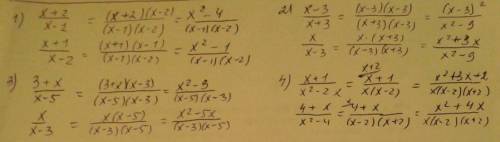 1) (x+2)/(x-1) = ((x+2)(x-2))/((x-1)(x-2)) = (x²-4)/((x-1)(x-2))
(x+1)/(x-2) = ((x+1)(x-1))/((x-1)(x-2)) = (x²-1)/((x-1)(x-2))
2) (x-3)/(x+3) = ((x-3)(x-3))/((x+3)(x-3)) = (x-3)²/(x²-9)
x/(x-3) = (x·(x+3))/((x-3)(x+3)) = (x²+3x)/(x²-9)
3) (3+x)/(x-5) = ((3+x)(x-3))/((x-5)(x-3)) = (x²-9)/((x-5)(x-3))
x/(x-3) = (x(x-5))/((x-3)(x-5)) = (x²-5x)/((x-3)(x-5))
4) (x+1)/(x²-2x) = ˣ⁺²(x+1)/(x(x-2)) = (x²+3x+2)/(x(x-2)(x+2))
(4+x)/(x²-4) = (4+x)/((x-2)(x+2)) = (x²+4x)/(x(x-2)(x+2))